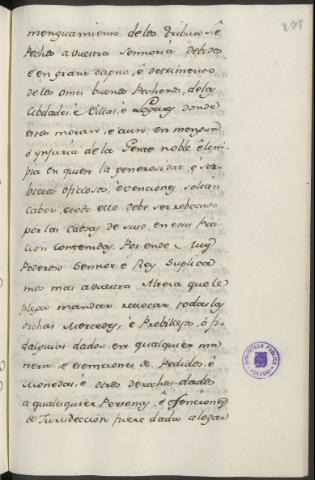 285
menguamiento de los tributos, ê
Pechos a vuestra Sennoria debidos
è en grant dapno, è detrimento
de los omes buenos Pecheros, de las
Cibdades, è Villas, è Logares donde
estos moran, è aun en mengua
ô ynjuria de la Gente noble è lim
pia en quien la generosidat, è ser
bicios oficiosos, è venciones solian
caber, è todo ello debe ser rebocado
por las cabsas de suso, en esta Peti
cion contenidas, Por ende Muy
Poderoso Sennor è Rey suplica
mos mas a vuestra Alteza que le
plega mandar revocar todas las
dichas Mercedes, è Prebilejos, ò fi
dalguias dadas en qualquier ma
nera, è esenciones de Pedidos, è
Monedas, è otros derechos dados
a qualesquier Personas, è esenciones
de Jurisdeccion fuere dada a logar
BIBLIOTECA PÚBLICA
TOLEDO